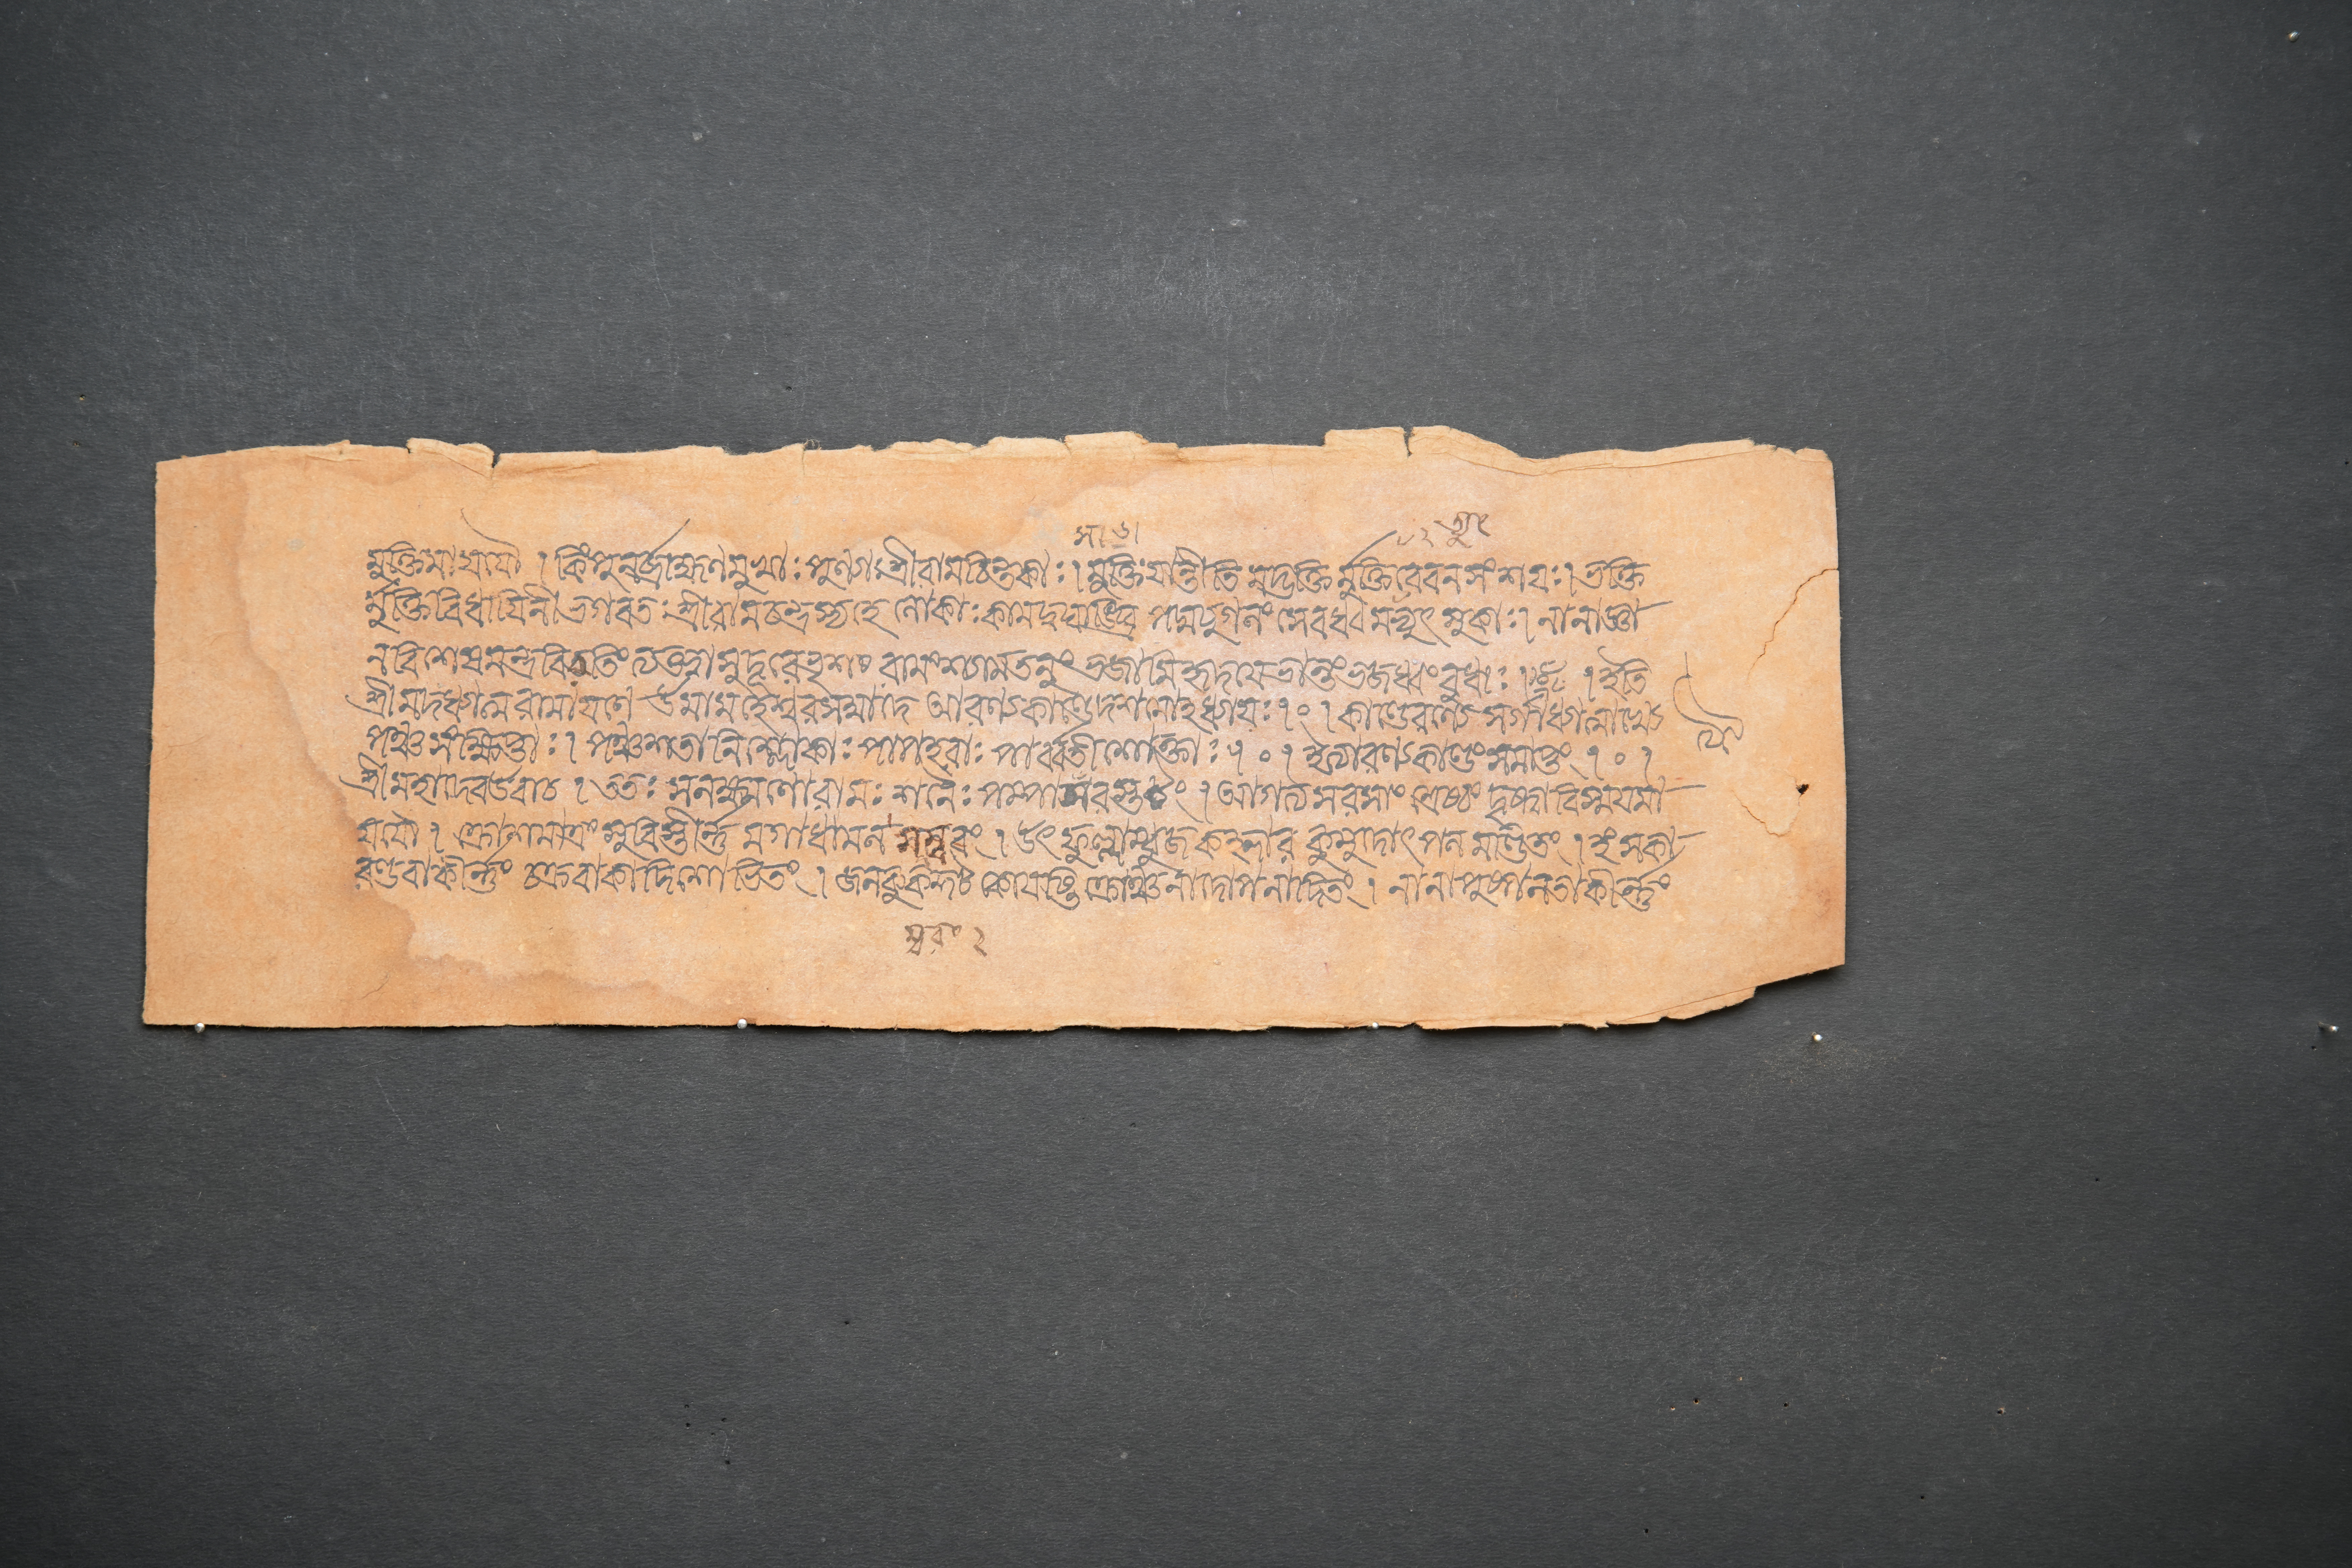 সা ৬।
৮ ২ ত্মুৎ
মুক্তিমাযযৌ । কিংপুনর্ব্রাহ্মণমুখ্যাঃ পুণ্যাঃ শ্রীরামচিন্তকাঃ । মুক্তিং যান্তীতি মদ্ভক্তি র্মুক্তিরেবনসংশযঃ। ভক্তি
র্মুক্তিবিধাযিনী ভগবতঃ শ্রীরামচন্দ্রস্যহে লোকাঃ কামদুঘাঙ্ঘ্রি পদ্মযুগলং সেবধ্বমত্যুৎসুকাঃ। নানাজ্ঞা
নবিশেষমন্ত্রবিততিং ত্যক্ত্বাসুদূরেভৃশং রামংশ্যামতনুং ভজামিহৃদযেভান্তংভজধ্বংবুধাঃ । ইতি
শ্রীমদধ্যাত্মরামাযণে উমামহেশ্বরসম্বাদে আরণ্যকাণ্ডেদশমোহধ্যাযঃ। ০ । কাণ্ডেরণ্যে সর্গাধ্যাত্মাখ্যে
পঞ্চসংক্ষিপ্তাঃ। পঞ্চশতানিশ্লোকাঃ পাপহরাঃ পার্ব্বতীশোক্তাঃ । ০ । ইত্যারণ্যকাণ্ডংসমাপ্তং । ০ ।
শ্রীমহাদেবউবাচ । ততঃ সলক্ষ্মণোরামঃ শনৈঃ পম্পাসরস্তটং । আগত্যসরসাং শ্রেষ্ঠং দৃষ্ট্বাবিস্মযমা
যযৌ । ক্রোশমাত্রং সুবিস্তীর্ন্ন মগাধামল সম্বরং । উৎফুল্লাম্বুজ কহ্লার কুমুদোৎপল মণ্ডিতং । হংসকা
রণ্ডবাকীর্ন্নং চক্রবাকাদিশোভিতং । জলকুক্কুট কোযষ্টি ক্রৌঞ্চনাদোপনাদিতং । নানাপুষ্পলতাকীর্ন্নং
ম্বরং ২